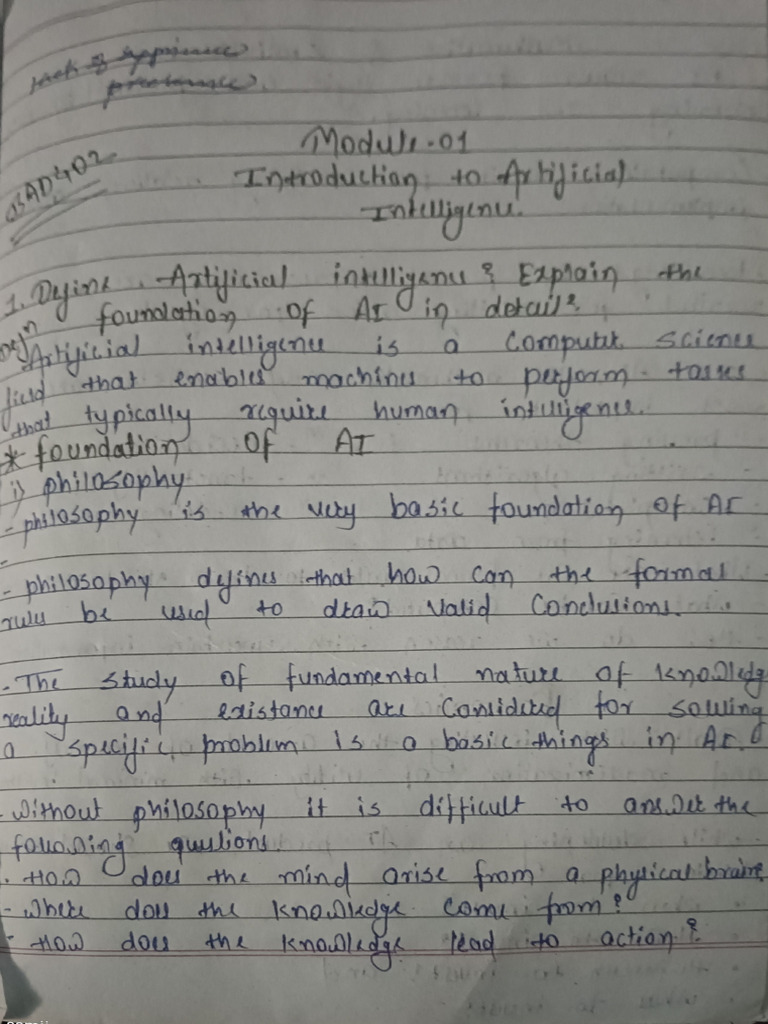 lack of
Module-01
Introduction to Artificial
Intelligence.
1. Define Artificial intelligence? Explain the
foundation of AI in detail?
Defn
Artificial intelligence is a computer science
field that enables machines to perform tasks
that typically require human intelligence.
* foundation of AI
i) philosophy
- philosophy is the very basic foundation of AI
-
- philosophy defines that how can the formal
rules be used to draw valid conclusions.
- The study of fundamental nature of knowledg
reality and existance are considered for solving
a specific problem is a basic things in AI.
- without philosophy it is difficult to answer the
following questions.
. How does the mind arise from a physical brain
- where does the knowledge come from?
- How does the knowledge lead to action?